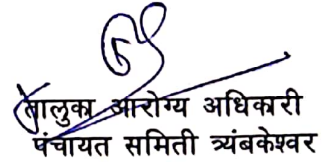 तालुका आरोग्य अधिकारी
पंचायत समिती त्र्यंबकेश्वर